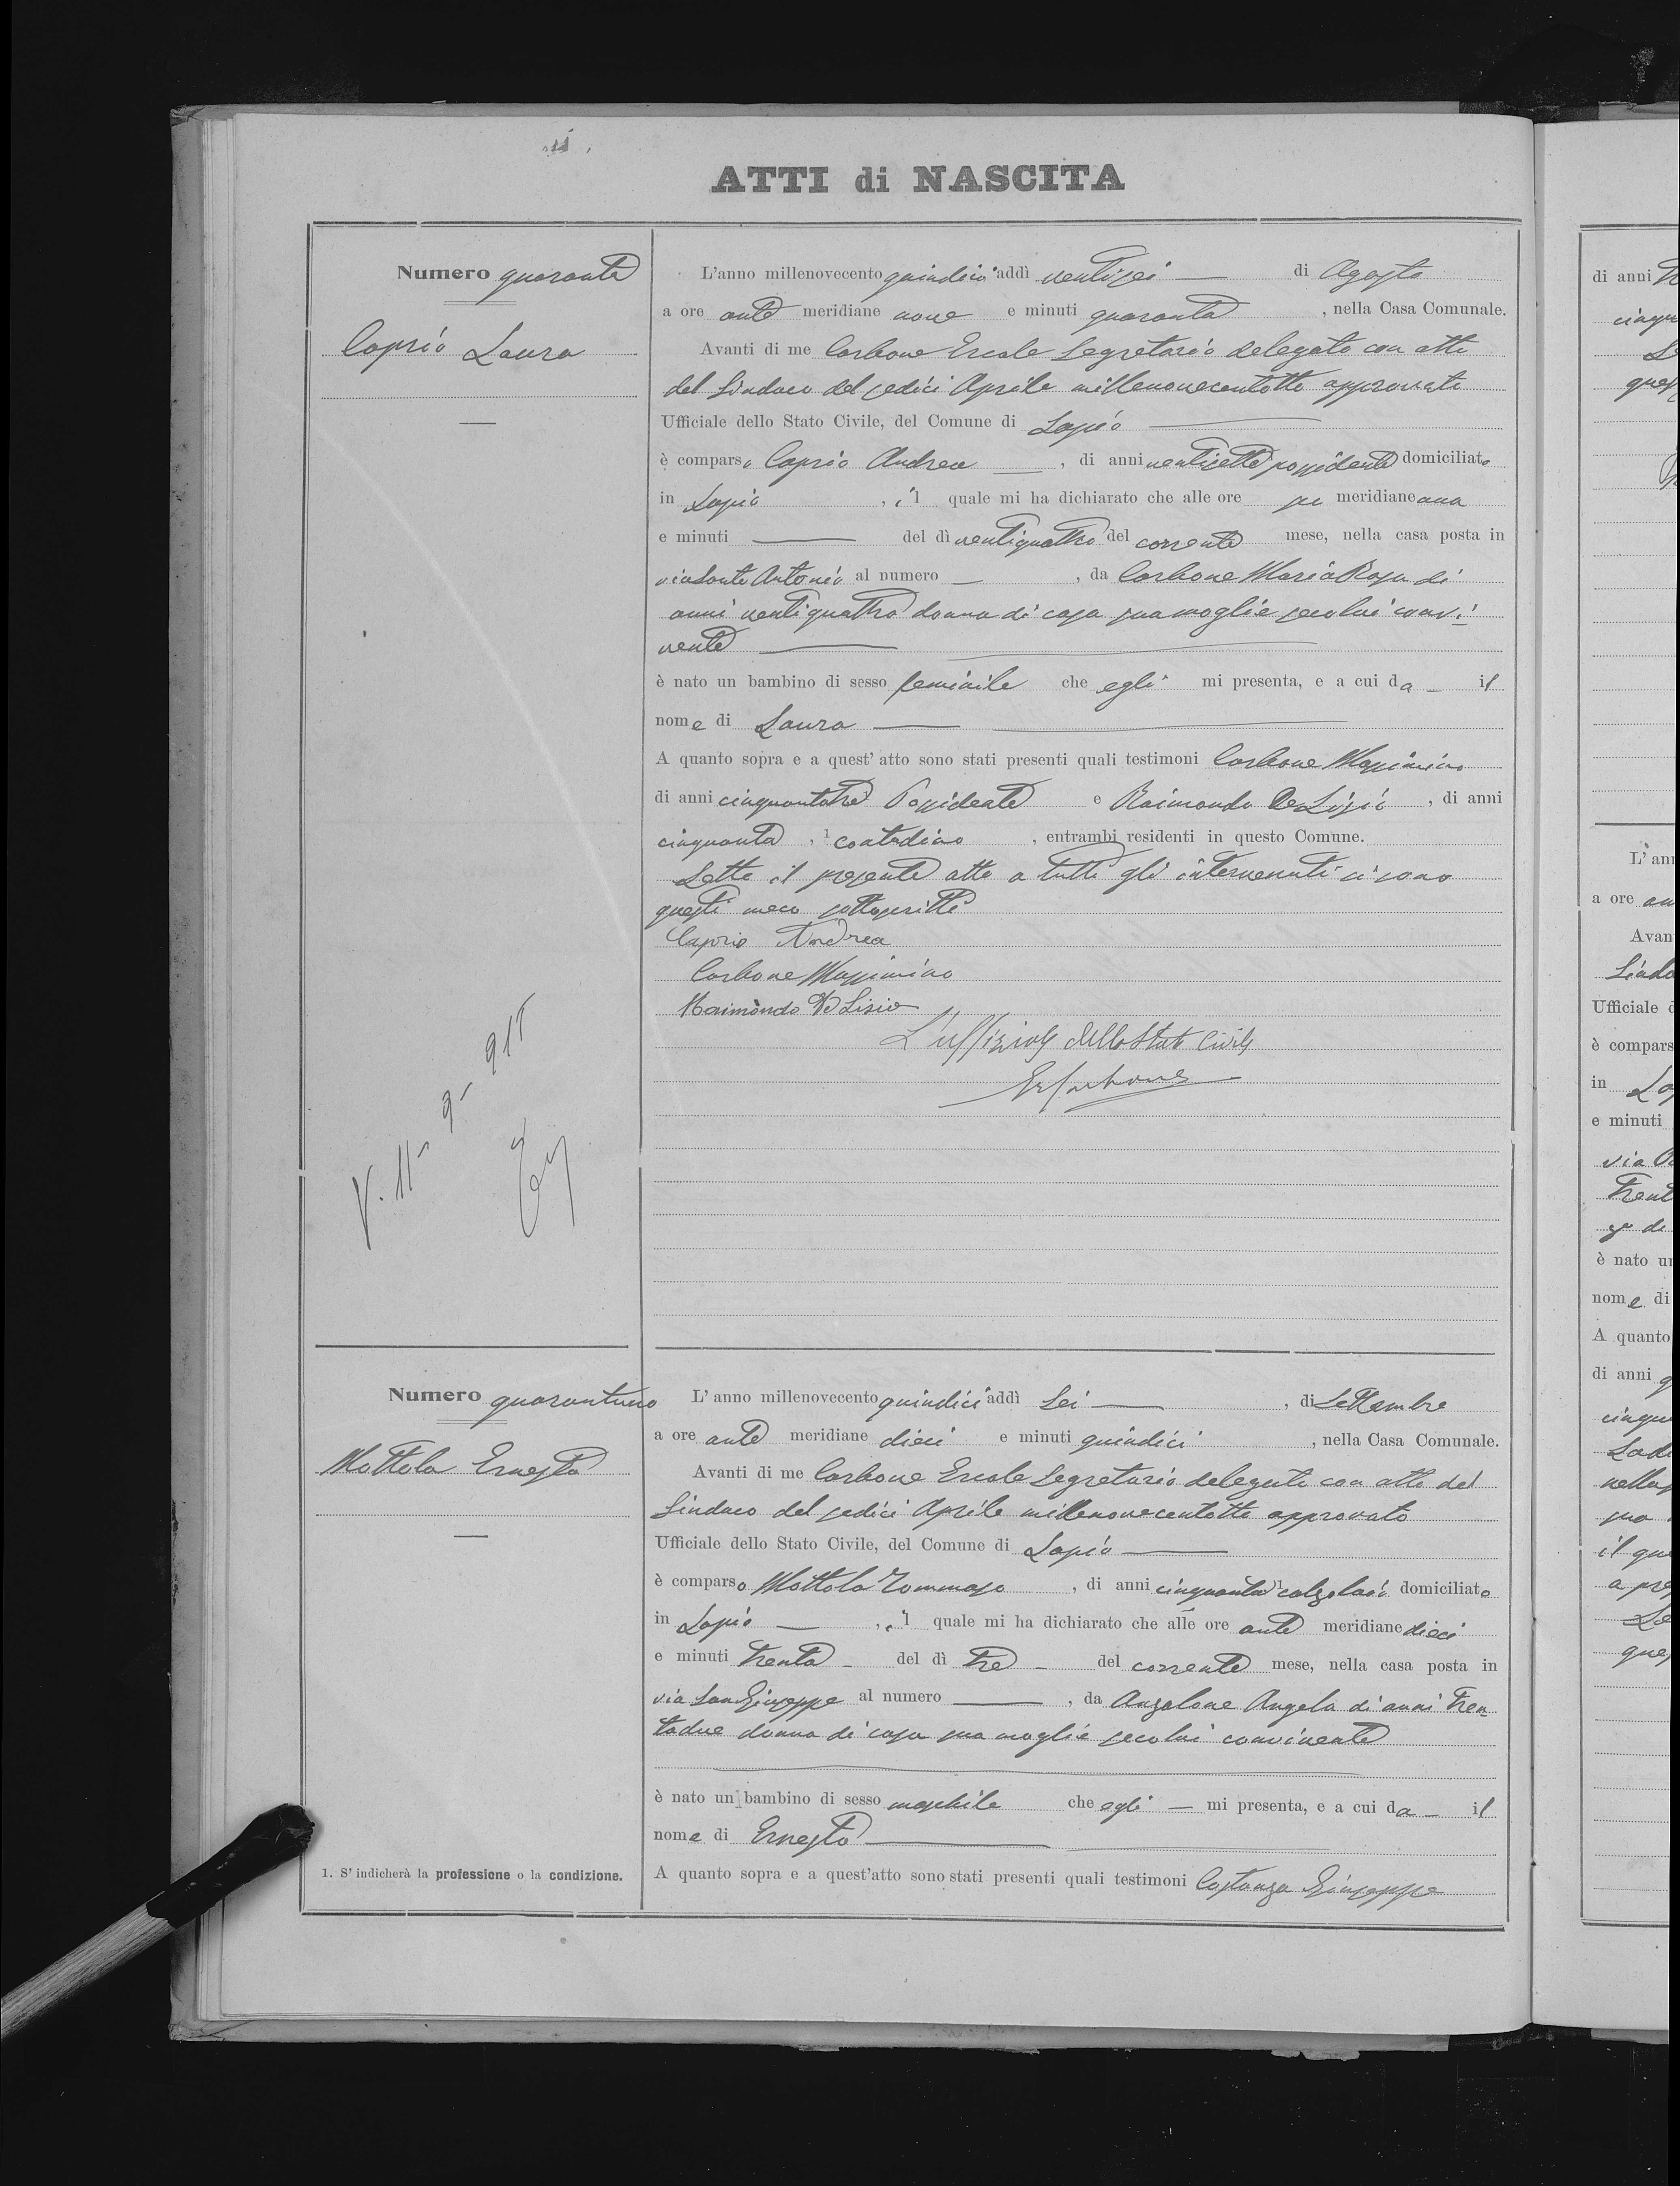 ATTI di NASCITA
Numero quaranta
Caprio Laura
L'anno millenovecento quindici addì ventisei di Agosto
a ore ante meridiane nove e minuti quaranta, nella Casa Comunale.
Avanti di me Carbone Ercole Segretario delegato con atto
del Sindaco del sedici Aprile millenovecentotto approvato
Ufficiale dello Stato Civile, del Comune di Lapio
è comparso Caprio Andrea, di anni ventisette possidente domiciliato
in Lapio, il quale mi ha dichiarato che alle ore po meridiane una
e minuti del dì ventiquattro del corrente mese, nella casa posta in
via Santo Antonio al numero, da Carbone Maria Rosa di
anni ventiquattro donna di casa sua moglie secolui convi-
vente
è nato un bambino di sesso feminile che egli mi presenta, e a cui da il
nome di Laura
A quanto sopra e a quest'atto sono stati presenti quali testimoni Carbone Massimino
di anni cinquantatrè Possidente e Raimondo De Lisio, di anni
cinquanta, 1 contadino, entrambi residenti in questo Comune.
Letto il presente atto a tutti gli intervenuti si sono
questi meco sottoscritti
Caprio Andrea
Carbone Massimino
Raimondo De Lisio
L'uffiziale dello Stato Civile
E. Carbone
V. 11-9-915
Numero quarantuno
Mottola Ernesto
L'anno millenovecento quindici addì Sei, di Settembre
a ore ante meridiane dieci e minuti quindici, nella Casa Comunale.
Avanti di me Carbone Ercole Segretario delegato con atto del
Sindaco del sedici Aprile millenovecentotto approvato
Ufficiale dello Stato Civile, del Comune di Lapio
è comparso Mottola Tommaso, di anni cinquanta 1 calzolaio domiciliato
in Lapio, il quale mi ha dichiarato che alle ore ante meridiane dieci
e minuti trenta del dì tre del corrente mese, nella casa posta in
via San Giuseppe al numero, da Anzalone Angela di anni tren-
tadue donna di casa sua moglie secolui convivente
è nato un bambino di sesso maschile che egli mi presenta, e a cui da il
nome di Ernesto
1. S'indicherà la professione o la condizione.
A quanto sopra e a quest'atto sono stati presenti quali testimoni Costanza Giuseppe